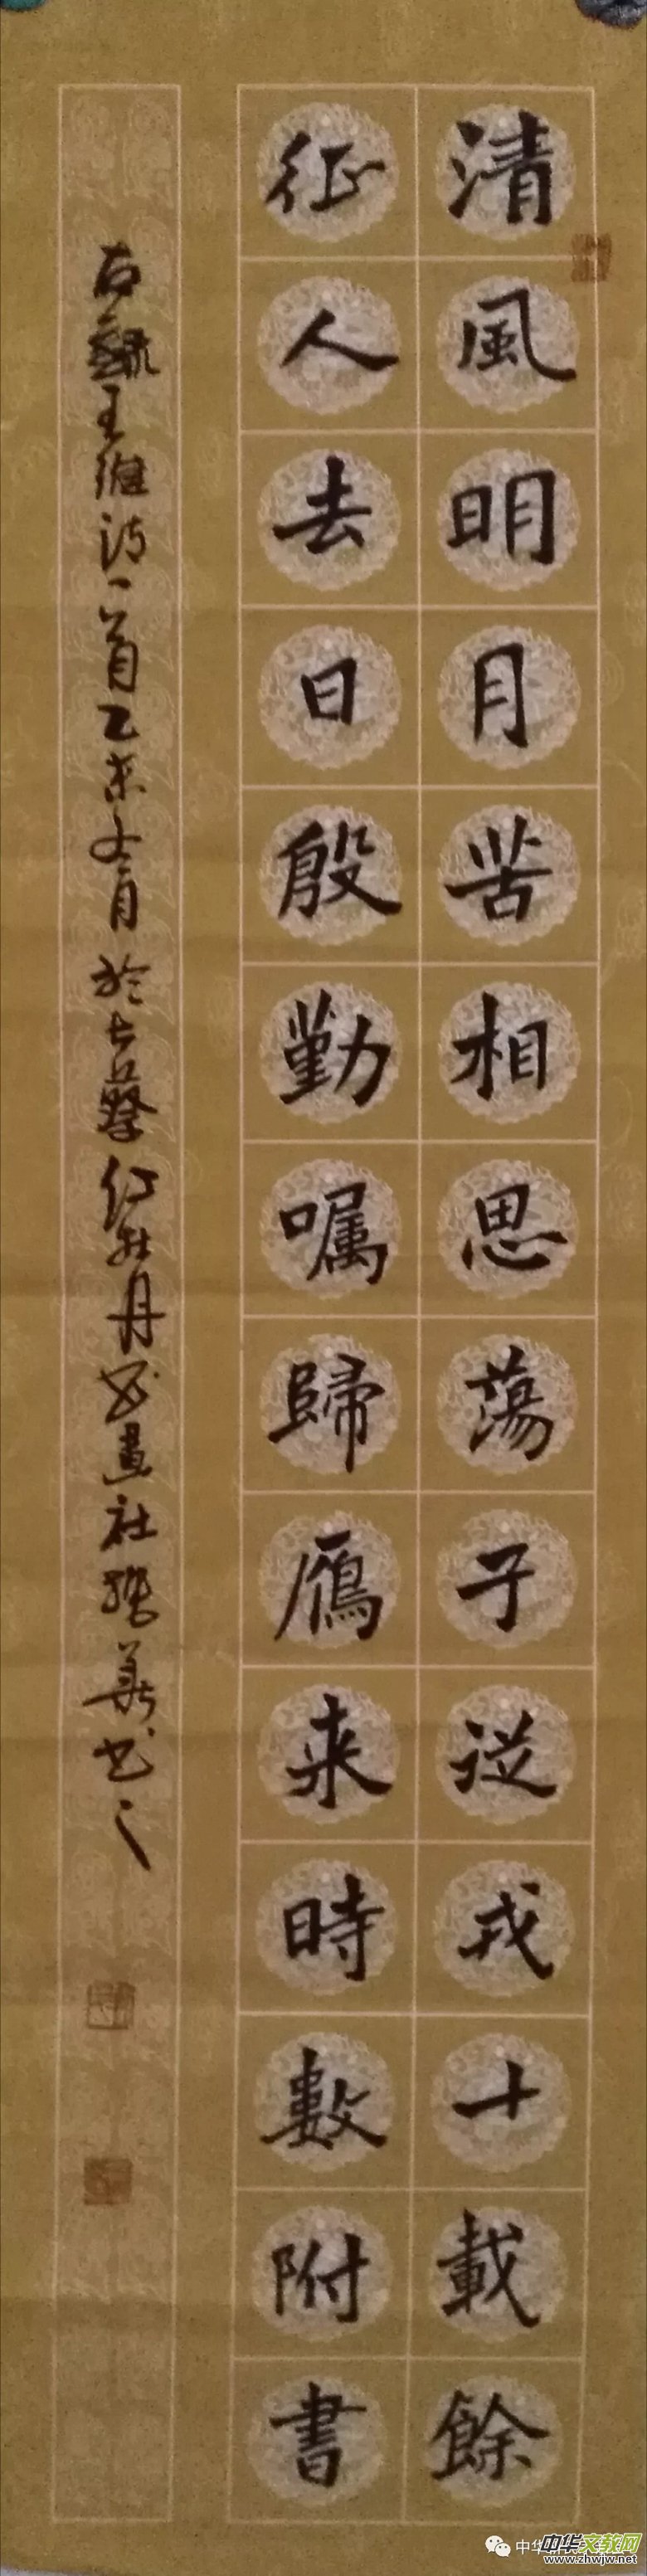 清風明月苦相思蕩子從戎十載餘
征人去日殷勤嘱歸鴈来時數附書
右錄王維詩一首乙未冬月於上蔡红牡丹书畫社 华书之
中华文教网
www.zhwjw.net